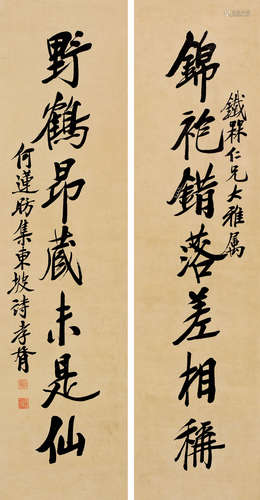 鐵槑仁兄大雅属
錦袍錯落差相稱
野鶴昂藏未是仙
何蓮舫集東坡詩孝胥